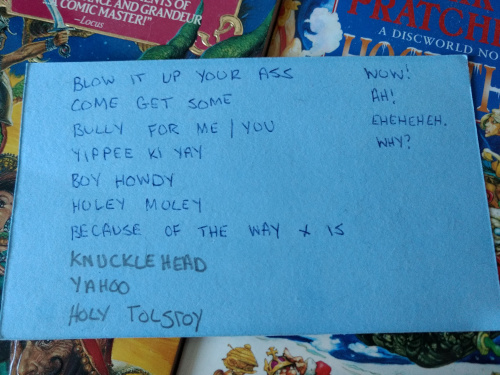 ENTS OF
CE AND GRANDEUR
COMIC MASTER!"
—Locus
PRATCHE
A DISCWORLD NO
BLOW IT UP YOUR ASS
COME GET SOME
BULLY FOR ME / YOU
YIPPEE KI YAY
BOY HOWDY
HOLEY MOLEY
BECAUSE OF THE WAY X IS
KNUCKLEHEAD
YAHOO
HOLY TOLSTOY
WOW!
AH!
EHEHEHEH.
WHY?